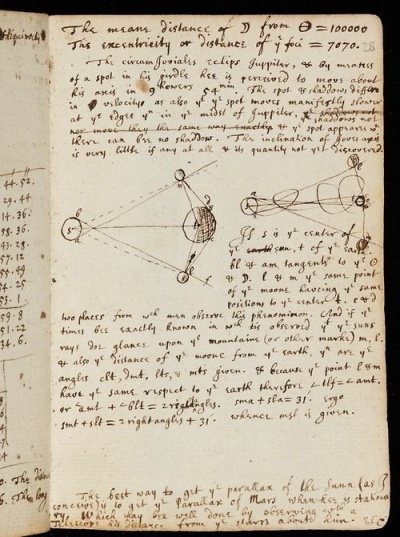 The meane distance of ☽ from ⊖ = 100000
The excentricity or distance of yᵉ foci = 7070. 28
The circumjoviales eclips Jupiter, & by meanes
of a spot in his girdle hee is perceived to move about
his axis in 9 howers 54ᵐⁱⁿ. The spot & shaddows differ
in velocity as also yᵉ spot moves manifestly slower
at yᵉ edges yⁿ in yᵉ midst of Jupiter,
nor move they the same way exactly & yᵉ spot appeares wⁿ
there can bee no shaddow. The inclination of Joves axis
is very little if any at all & its quantity not yet discovered.
If s is yᵉ center of
yᵉ sun, t of yᵉ earth
bl & am tangents to yᵉ
& ☽. l & m yᵉ same point
of yᵉ moone haveing yᵉ same
positions to yᵉ center t. c & d
two places from wᶜʰ men observe this phenomenon. And if yᵉ
times bee exactly known in wᶜʰ tis observed yᵗ yᵉ suns
rays doe glance upon yᵉ mountaine (or other marke) m, l.
& also yᵉ distance of yᵉ moone from yᵉ earth, yⁿ are yᵉ
angles clt, dmt, ltr, & mts given. & because yᵉ point l & m
have yᵉ same respect to yᵉ earth therefore <blt = <amt.
or amt + <blt = 2 right angles. sma + sla = 31. ergo
smt + slt = 2 right angles + 31. whence msl is given.
The best way to get yᵉ parallax of the Sunn (as I
conceive) is to get yᵉ Parallax of Mars when hee is stationa
ry. Which may bee well done by observing with a
Telescope his distance from yᵉ starrs about him. &c
44. 52.
29. 44
14. 36.
58. 36.
43. 28.
57. 12
55. 49
54. 25
53. 1
59. 8
51. 22
34. 6.